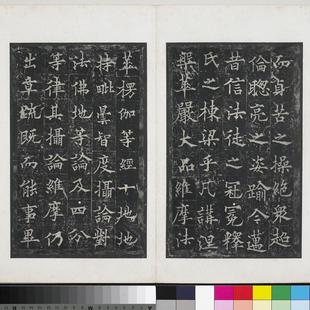 而貞苦之操絕衆超
倫聰亮之姿踰今邁
昔信法徒之冠冕釋
氏之棟梁乎凡講涅
槃華嚴大品維摩法
華楞伽等經十地地
持毗曇智度攝論對
法佛地等論及四分
等律其攝論維摩仍
出章疏既而能事畢